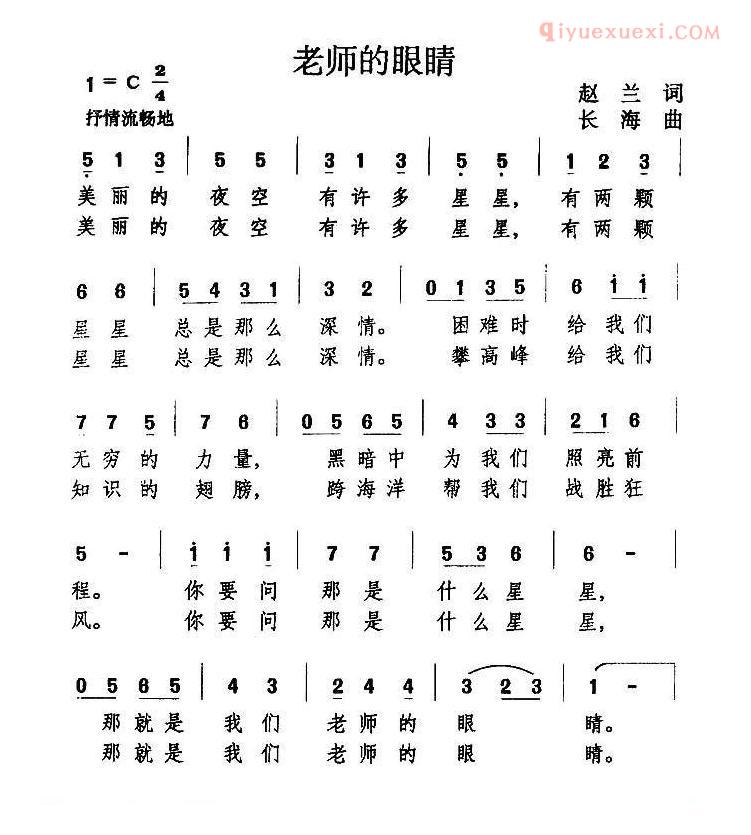 qiyuexuexi.com
老师的眼睛
1=C 2/4
赵兰 词
抒情流畅地
长海 曲
5 1 3 | 5 5 | 3 1 3 | 5 5 | 1 2 3 |
美丽的 夜空 有许多 星星, 有两颗
美丽的 夜空 有许多 星星, 有两颗
6 6 | 5 4 3 1 | 3 2 | 0 1 3 5 | 6 1 1 |
星星 总是那么 深情。 困难时 给我们
星星 总是那么 深情。 攀高峰 给我们
7 7 5 | 7 6 | 0 5 6 5 | 4 3 3 | 2 1 6 |
无穷的 力量, 黑暗中 为我们 照亮前
知识的 翅膀, 跨海洋 帮我们 战胜狂
5 - | 1 1 1 | 7 7 | 5 3 6 | 6 - |
程。 你要问 那是 什么星 星,
风。 你要问 那是 什么星 星,
0 5 6 5 | 4 3 | 2 4 4 | 3 2 3 | 1 - |
那就是 我们 老师的 眼 睛。
那就是 我们 老师的 眼 睛。